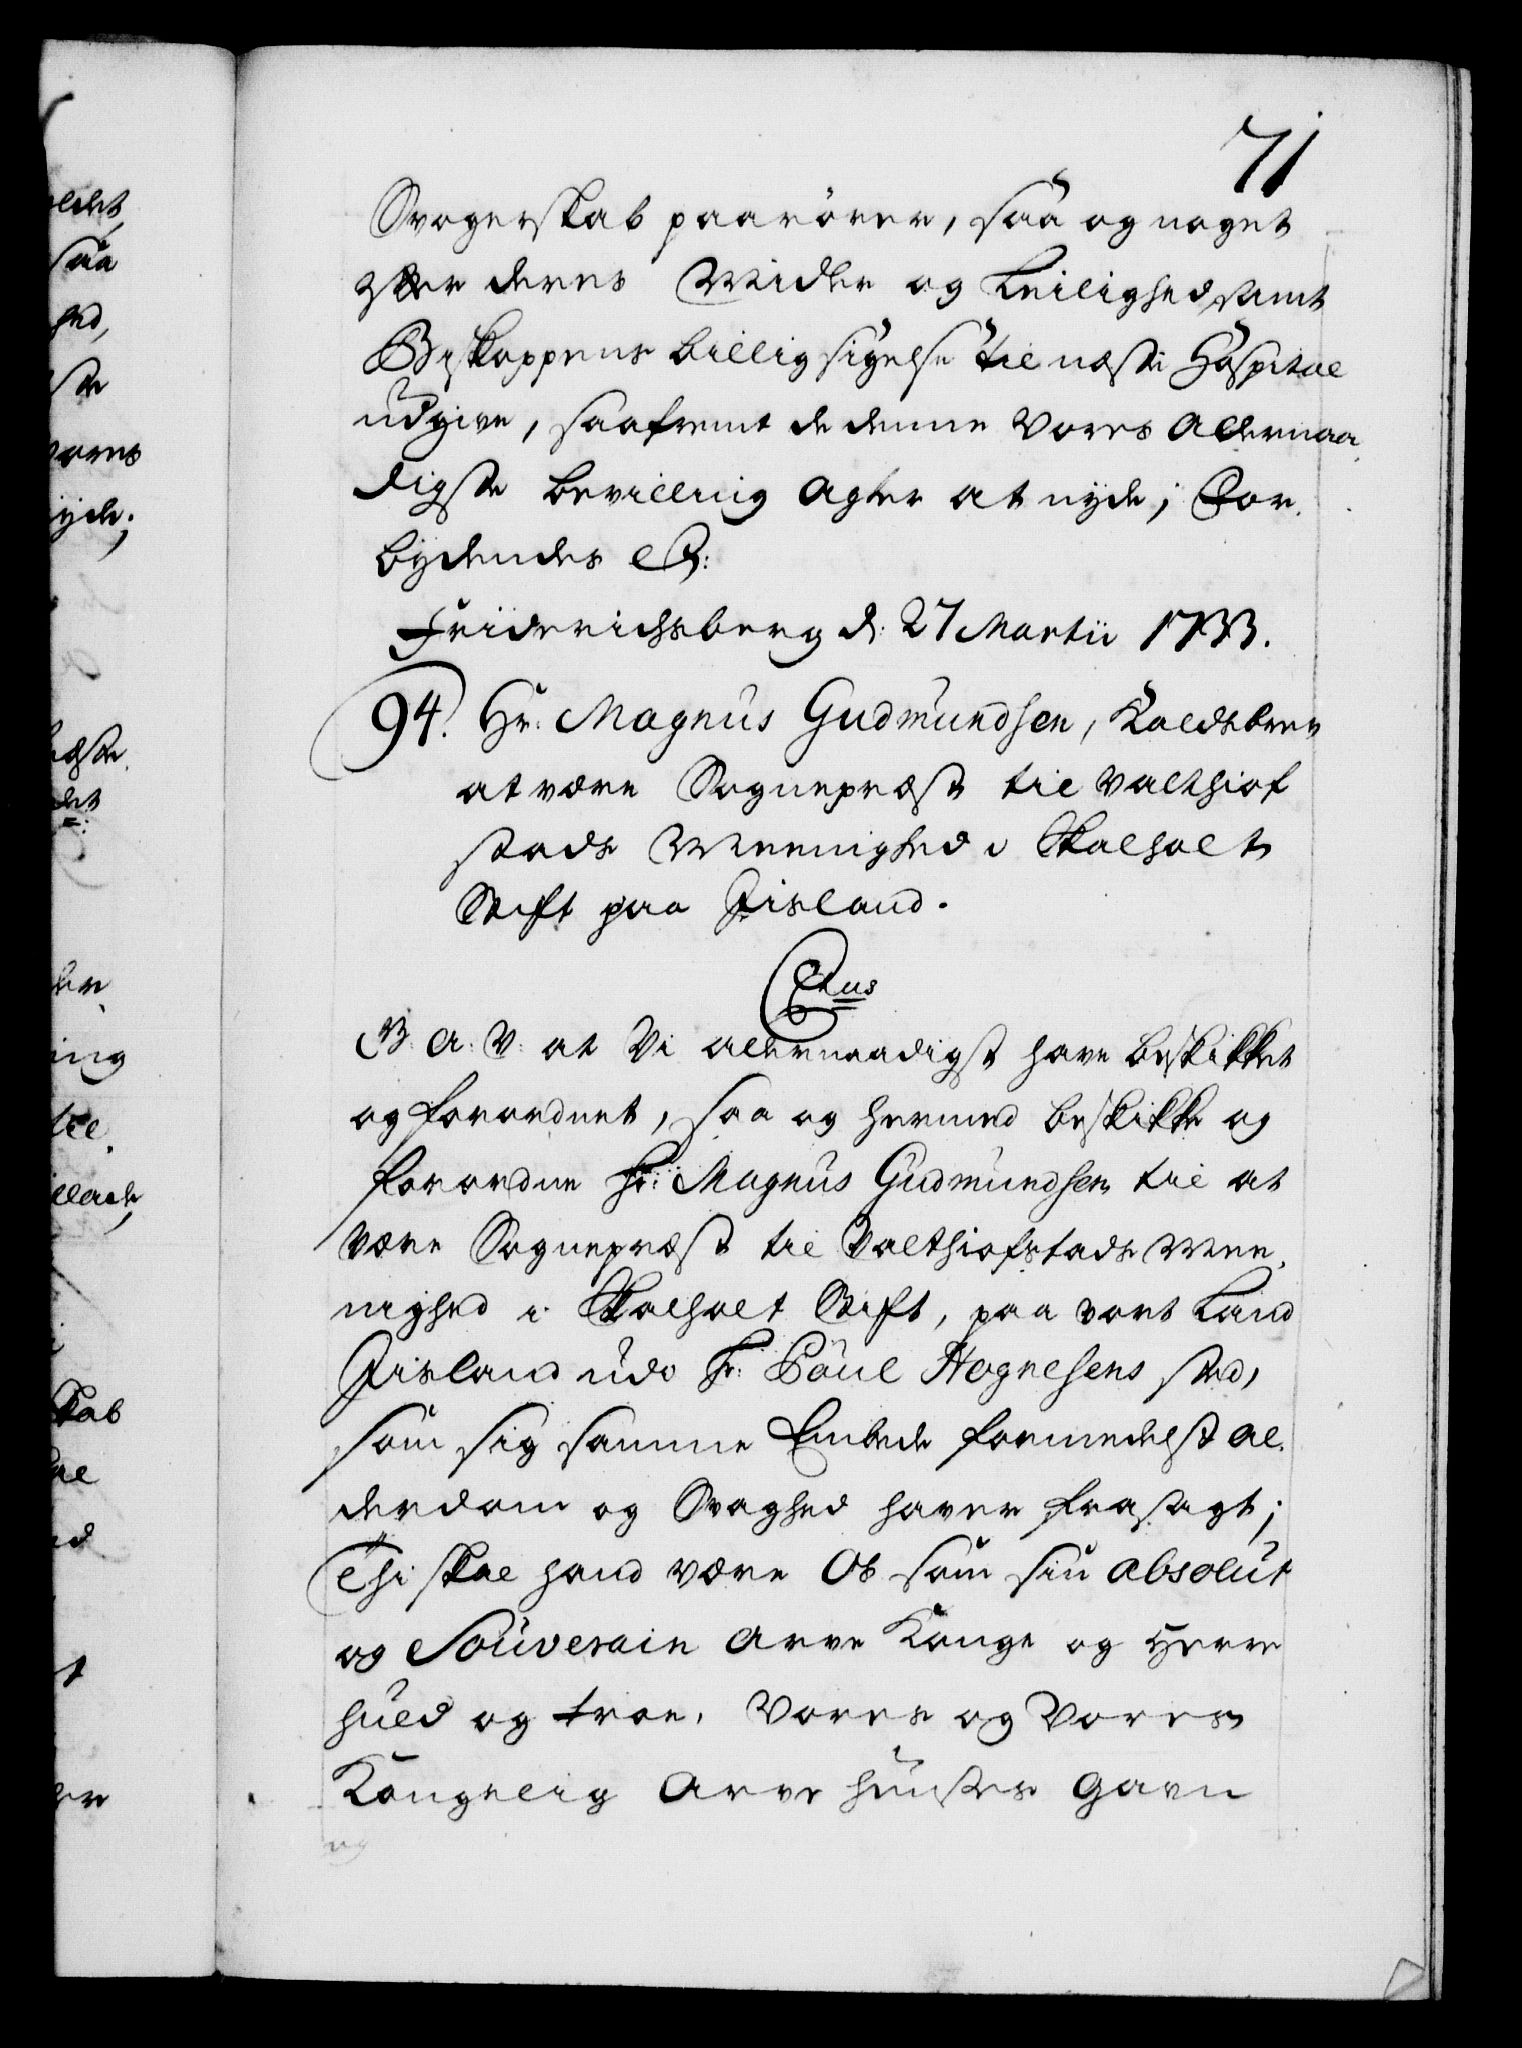 71
Svogerskab paarörer, saa og noget
efter deres Midler og Leilighed, samt
Biskoppens billig sigelse til næste Hospital
udgive, saafremt de denne Vores Allernaa-
digste bevilling agter at nyde; For-
bydendes etc:
Friderichsberg d: 27 Martii 1733.
94. Hr: Magnus Gudmundsen, Kaldsbrev
at være Sognepræst til Valthiof
stads Meenighed i Skalholt
Stift paa Jisland.
C6tus
G. A. V: at Vi allernaadigst have beskikket
og forordnet, saa og hermed beskikke og
forordne Hr: Magnus Gudmundsen til at
være Sognepræst til Valthiofstads Mee-
nighed i Skalholt Stift, paa vort Land
Jisland udi Hr: Poul Hognesens sted,
som sig samme Embede formedelst al-
derdom og Svaghed haver frasagt;
Thi skal hand være Os som sin absolut
og Souverain Arve Konge og Herre
huld og troe, Vores og Vores
Kongelig Arve Huuses Gavn